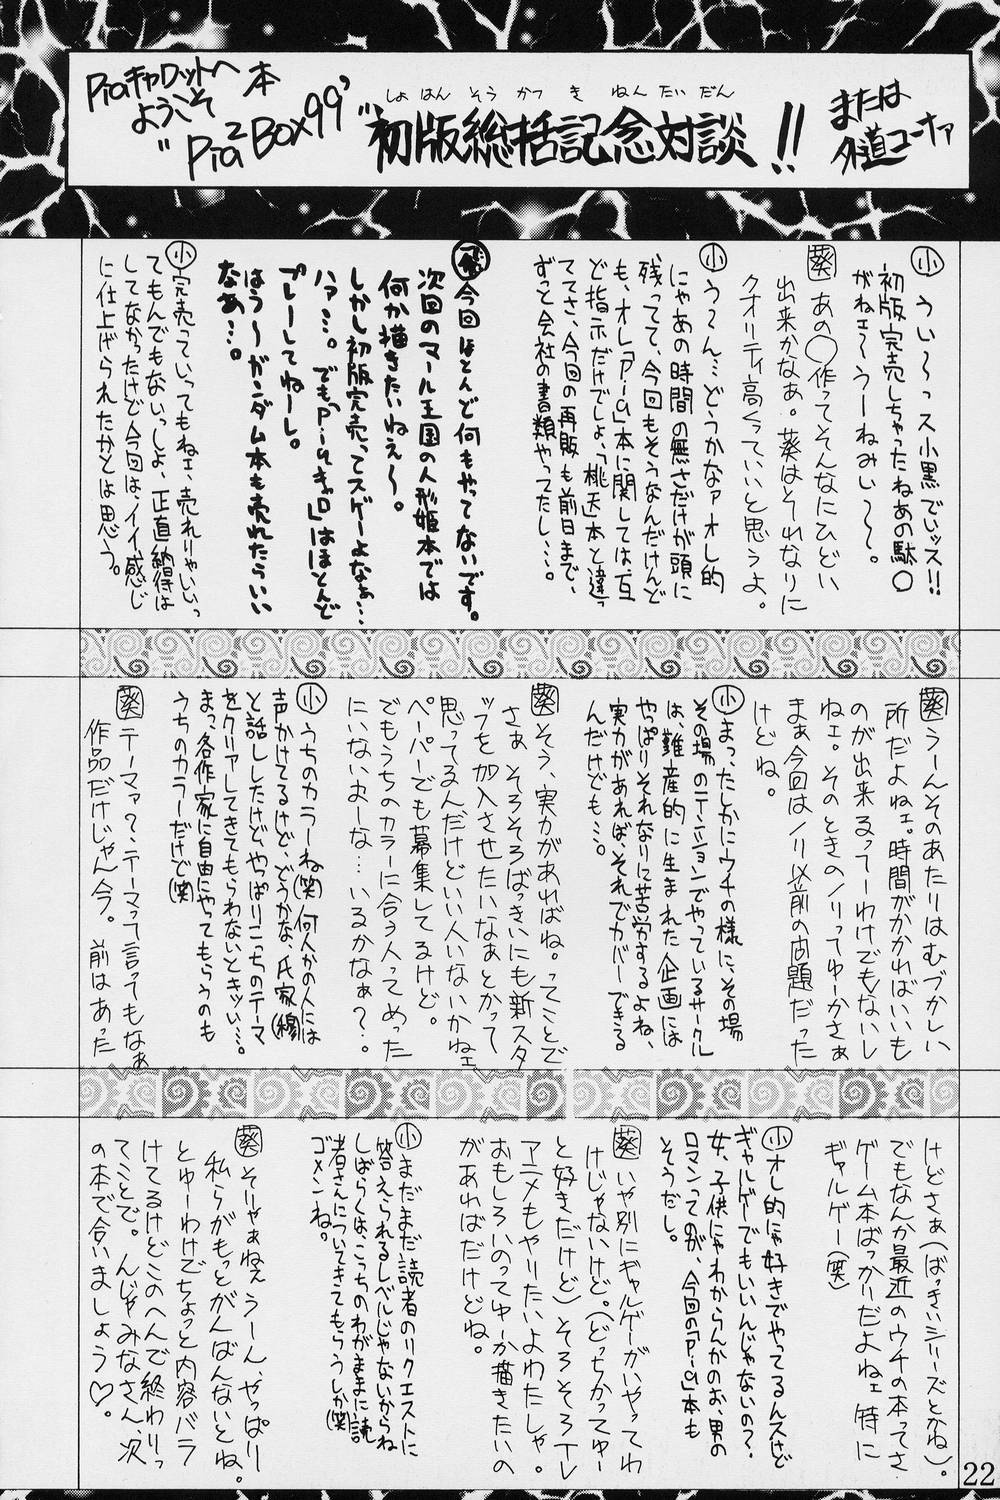 Piaキャロットへ
ようこそ 本
"Pia² Box99'"
しょはんそうかつきねんたいだん
初版総括記念対談!!
または
外道コーナァ
㊙小 うい〜っス小黒でいッス!!
初版完売しちゃったねあの駄〇
がねェ〜うーねみい〜。
葵 あの〇作ってそんなにひどい
出来かなぁ。葵はそれなりに
クオリティ高くっていいと思うよ。
小 う〜ん…どうかなァオレ的
にゃあの時間の無さだけが頭に
残ってて、今回もそうなんだけんど
も、オレ「Pia」本に関しては、互
ど指示だけでしょ、「桃天」本と違っ
ててさ、今回の再販も前日まで、
ずっと会社の書類やってたし…。
今回ほとんど何もやってないです。
次回のマール王国の人形姫本では
何か描きたいねえ〜。
しかし初版完売ってスゲーよなぁ…
ハァ…。でも「Piaキャロ」はほとんど
プレーしてねーし。
はう〜ガンダム本も売れたらいい
なあ…。
小 完売っていってもねェ、売れりゃいいっ
てもんでもないっしょ、正直納得は
してなかったけど今回は、イイ感じ
に仕上げられたかとは思う。
葵 うーんそのあたりはむづかしい
所だよねェ。時間がかかればいいも
のが出来るってーわけでもないし
ねェ。そのときのノリってゆーかさぁ
まぁ今回はノリ以前の問題だった
けどね。
小 まったしかにウチの様に、その場
その場のテンションでやっているサークル
は、難産的に生まれた企画には
やっぱりそれなりに苦労するよね、
実力があれば、それでカバーできる
んだけども…。
葵 そう、実力があればね。ってことで
さぁ そろそろばっきいにも新スタ
ッフを加入させたいなぁとかって
思ってるんだけどいい人いないかねェ
ペーパーでも募集してるけど。
でもうちのカラーに合う人ってめった
にいないよーな…いるかなぁ?。
小 うちのカラーね(笑)何人かの人には
声かけてるけど、どうかな、氏家(穆)
と話ししたけど、やっぱりこっちのテーマ
をクリアしてきてもらわないとキッい…。
まっ、各作家に自由にやってもらうのも
うちのカラーだけど(笑)
葵 テーマァ?、テーマって言ってもなぁ
作品だけじゃん今。 前はあった
けどさぁ(ばっきいシリーズとかね)。
でもなんか最近のウチの本ってさ
ゲーム本ばっかりだよねェ 特に
ギャルゲー(笑)
小 オレ的にゃ好きでやってるんスけど
ギャルゲーでもいいんじゃないの?、
女、子供にゃわからんかのお、男の
ロマンってのが、今回の「Pia」本も
そうだし。
葵 いや別にギャルゲーがいやってわ
けじゃないけど。(どっちかってゆー
と好きだけど)そろそろTV
アニメもやりたいよわたしゃ。
おもしろいのってゆーか描きたいの
があればだけどね。
小 まだまだ読者のリクエストに
答えられるレベルじゃないからね
しばらくは、こっちのわがままに読
者さんについてきてもらうしか(笑)
ゴメンね。
葵 そりゃぁねぇうーん、やっぱり
私らがもっとがんばんないとね。
とゆーわけでちょっと内容バラ
けてるけどこのへんで終わりっ
てことで。んじゃみなさん、次
の本で合いましょう♡。
22